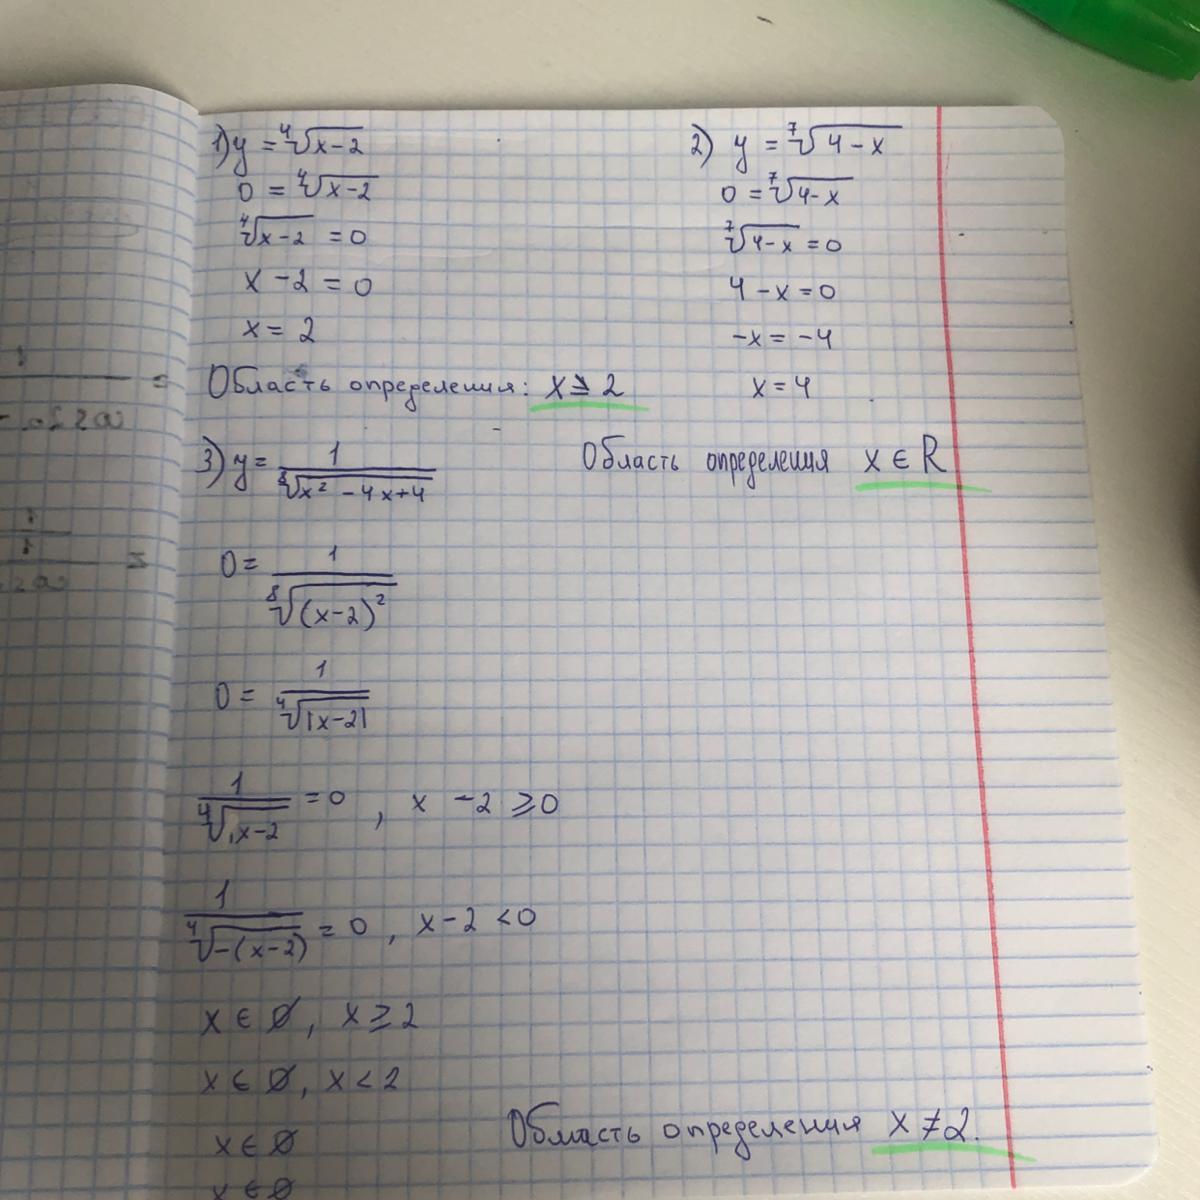 1) y = ⁴√(x-2)
0 = ⁴√(x-2)
⁴√(x-2) = 0
x - 2 = 0
x = 2
Область определения: x ≥ 2
2) y = ⁷√(4-x)
0 = ⁷√(4-x)
⁷√(4-x) = 0
4 - x = 0
-x = -4
x = 4
Область определения x ∈ R
3) y = 1/⁸√(x² - 4x + 4)
0 = 1/⁸√((x-2)²)
0 = 1/⁴√(|x-2|)
1/⁴√(x-2) = 0, x - 2 ≥ 0
1/⁴√(-(x-2)) = 0, x - 2 < 0
x ∈ ∅, x ≥ 2
x ∈ ∅, x < 2
x ∈ ∅
x ∈ ∅
Область определения x ≠ 2.